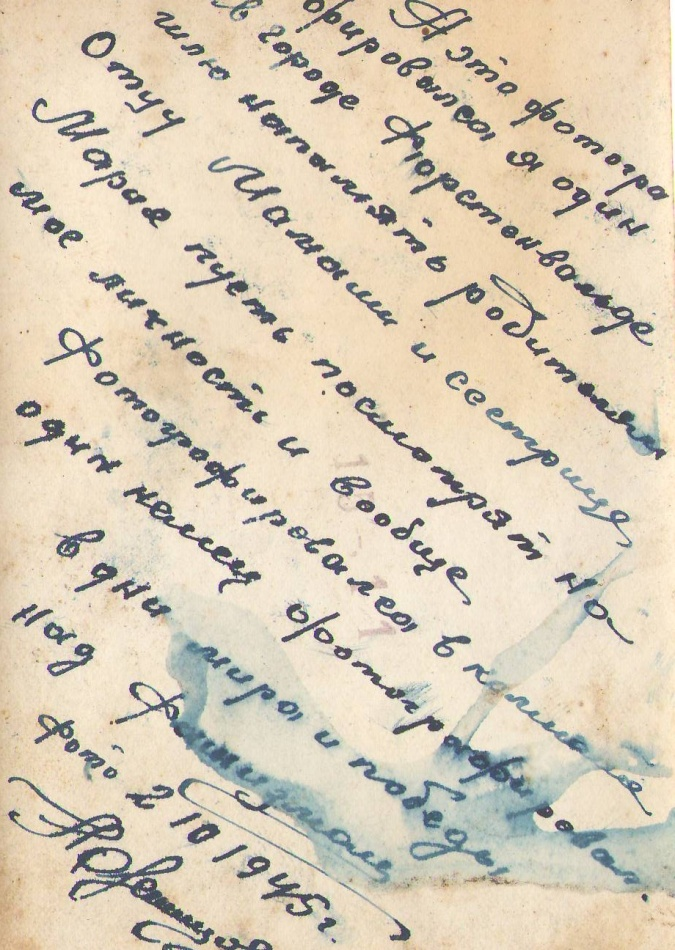 А это фотогра
фировался я один
в городе Фюрстенвальде
шлю напамять родителям
Отцу Мамаши и сестрице
Марие пусть посмотрят на
мое личность и вообще
Фотографировался в комнате
один немец фотографировал.
в дни мира и победы
над Фашизмом
фото 2 10 1945 г.